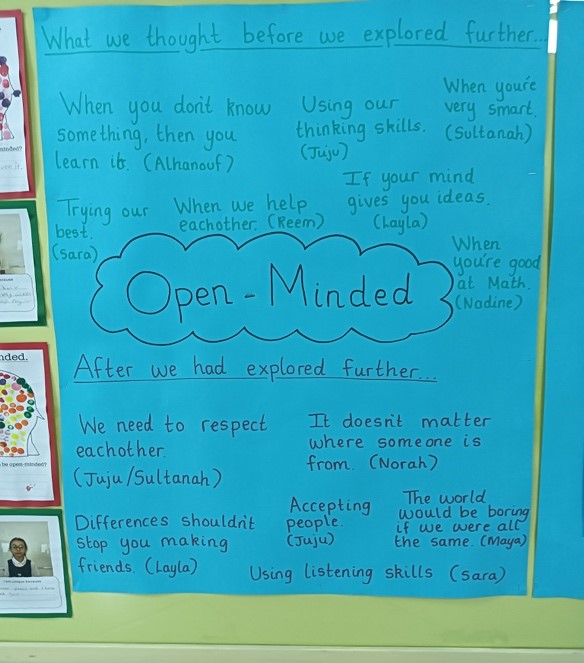 What we thought before we explored further...
When you don't know
something, then you
learn it. (Alhanouf)
Using our
thinking skills.
(Juju)
When you're
very smart.
(Sultanah)
Trying our
best.
(Sara)
When we help
eachother. (Reem)
If your mind
gives you ideas.
(Layla)
When
you're good
at Math.
(Nadine)
Open-Minded
After we had explored further...
We need to respect
eachother.
(Juju/Sultanah)
It doesn't matter
where someone is
from. (Norah)
Differences shouldn't
stop you making
friends. (Layla)
Accepting
people.
(Juju)
The world
would be boring
if we were all
the same. (Maya)
Using listening skills (Sara)
nded.
be open-minded?